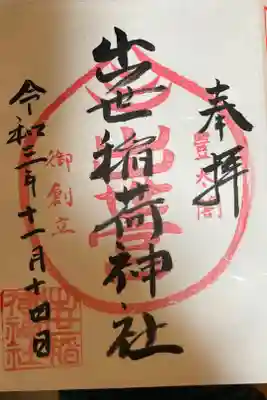 奉拝
豊太閤
出世稲荷神社
御創立
令和三年十一月十四日